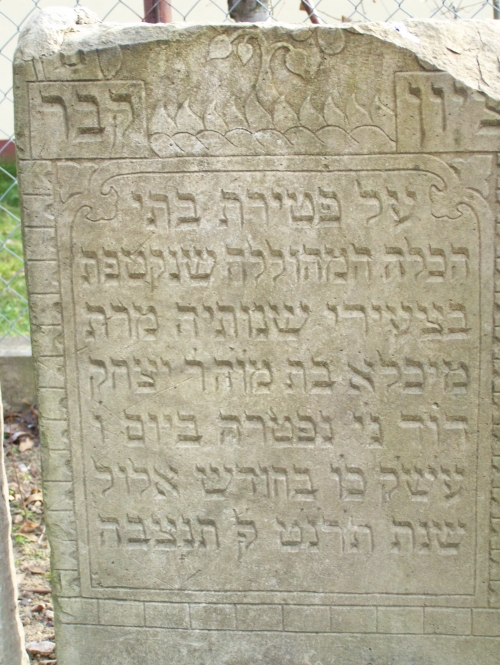 ציון קבר
על פטירת בתי
הכלה המהוללה שנקטפת
בצעירי שנותיה מרת
מיכלא בת מוהר יצחק
דוד ני נפטרה ביום ו
עשק כו בחודש אלול
שנת תרנט ק תנצבה